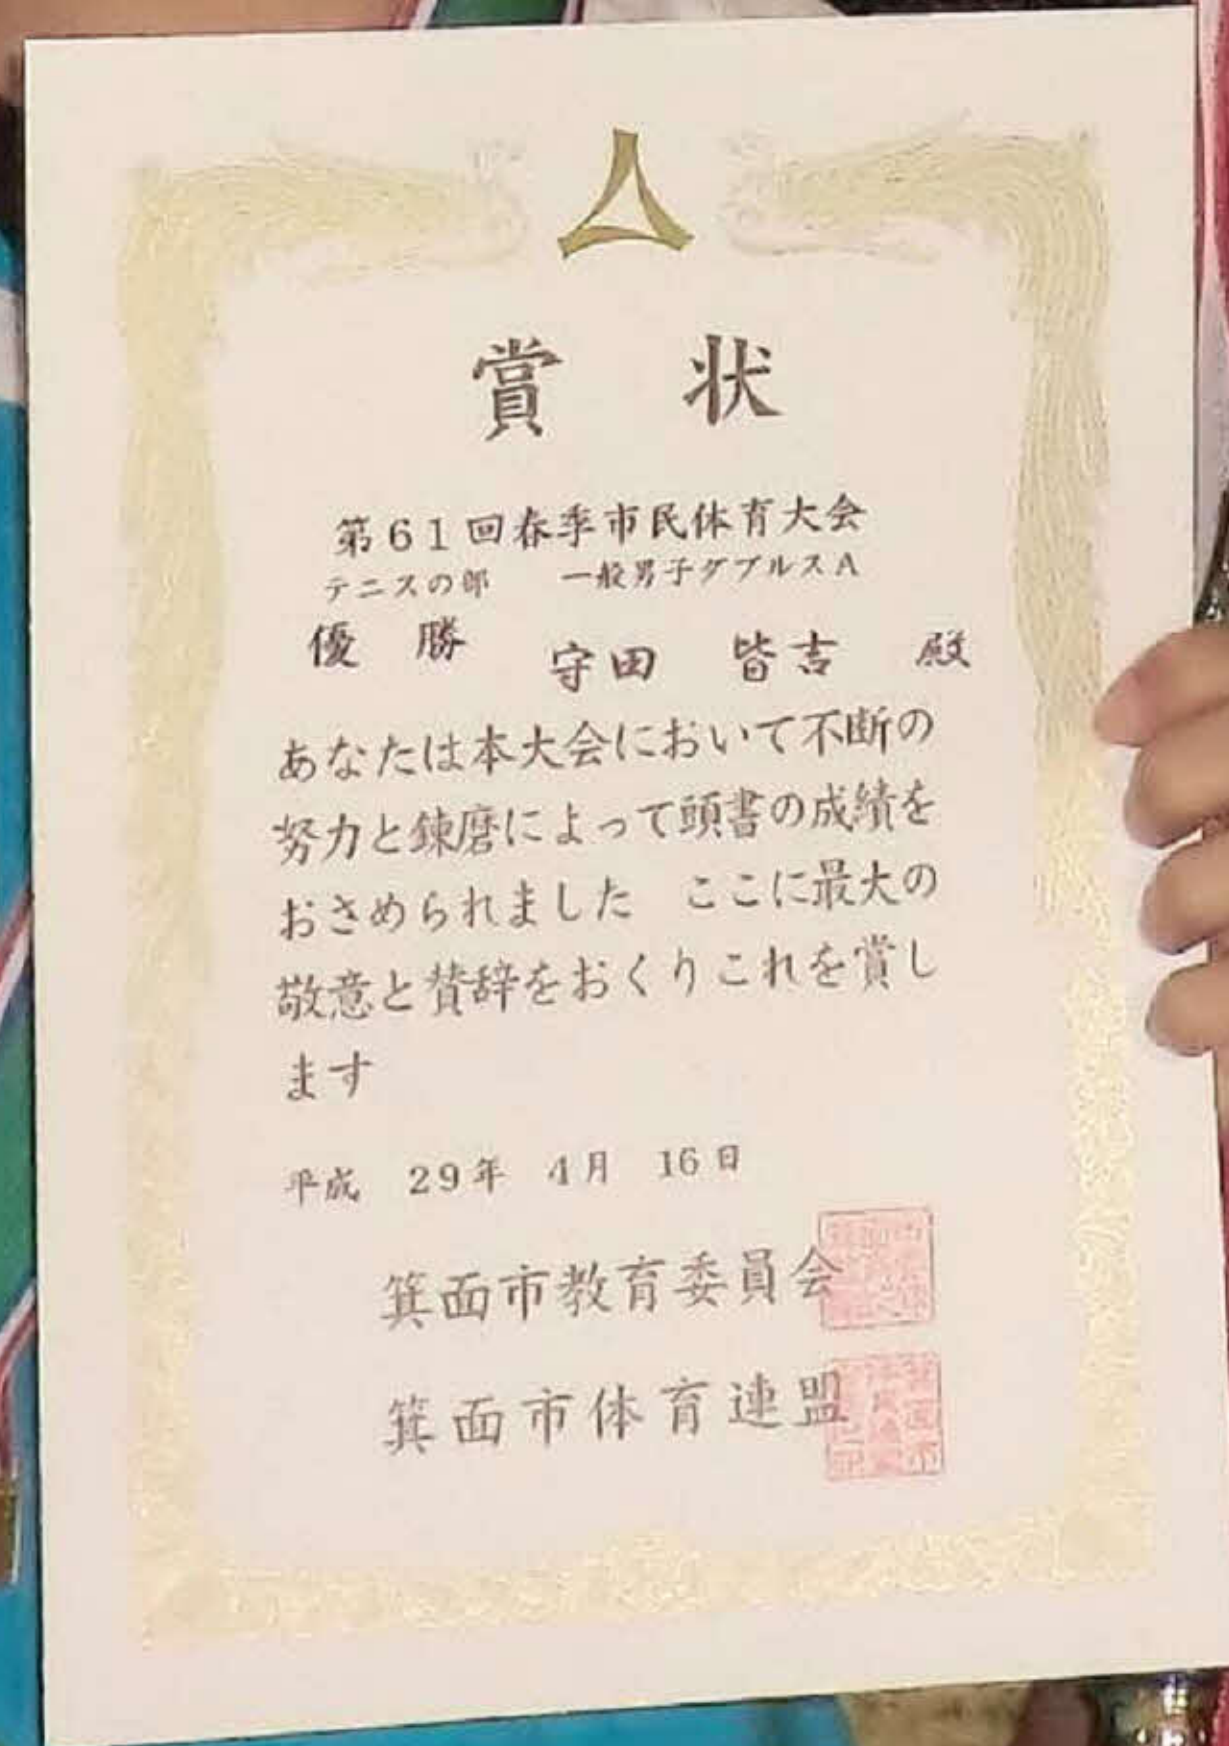 賞状
第61回春季市民体育大会
テニスの部 一般男子ダブルスA
優勝 守田 皆吉 殿
あなたは本大会において不断の
努力と錬磨によって頭書の成績を
おさめられました ここに最大の
敬意と賛辞をおくりこれを賞し
ます
平成 29年 4月 16日
箕面市教育委員会
箕面市体育連盟